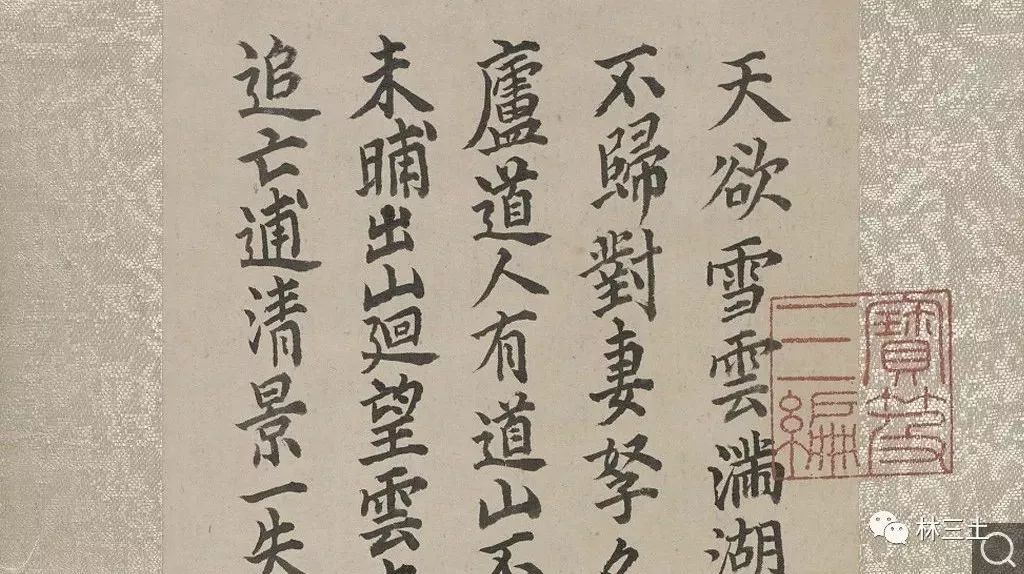 寶笈
三編
天欲雪雲滿湖
不歸對妻孥
廬道人有道山不
未晡出山迴望雲
追亡逋清景一失
林三土